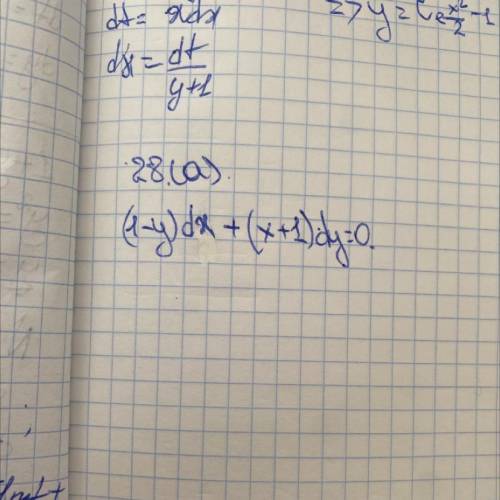 dt = xdx
=> y = C e^{\frac{x^2}{2}} - 1
dx = \frac{dt}{y+1}
28.(a).
(1-y)dx + (x+1)dy=0.